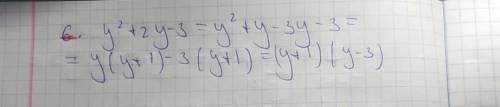 6. y² + 2y - 3 = y² + y - 3y - 3 =
= y (y+1) - 3 (y+1) = (y+1) (y-3)